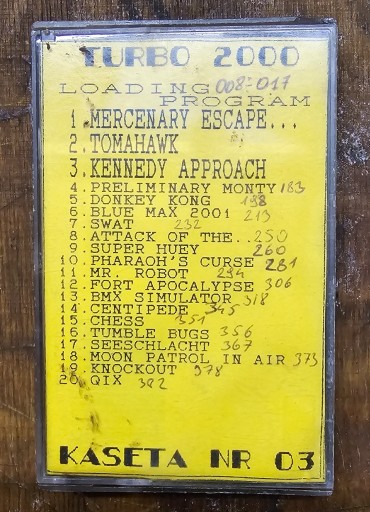 TURBO 2000
LOADING 008-017
PROGRAM
1. MERCENARY ESCAPE...
2. TOMAHAWK
3. KENNEDY APPROACH
4. PRELIMINARY MONTY 183
5. DONKEY KONG 198
6. BLUE MAX 2001 213
7. SWAT 232
8. ATTACK OF THE.. 250
9. SUPER HUEY 260
10. PHARAOH'S CURSE 281
11. MR. ROBOT 294
12. FORT APOCALYPSE 306
13. BMX SIMULATOR 318
14. CENTIPEDE 345
15. CHESS 351
16. TUMBLE BUGS 356
17. SEESCHLACHT 367
18. MOON PATROL IN AIR 373
19. KNOCKOUT 378
20. QIX 392
KASETA NR 03